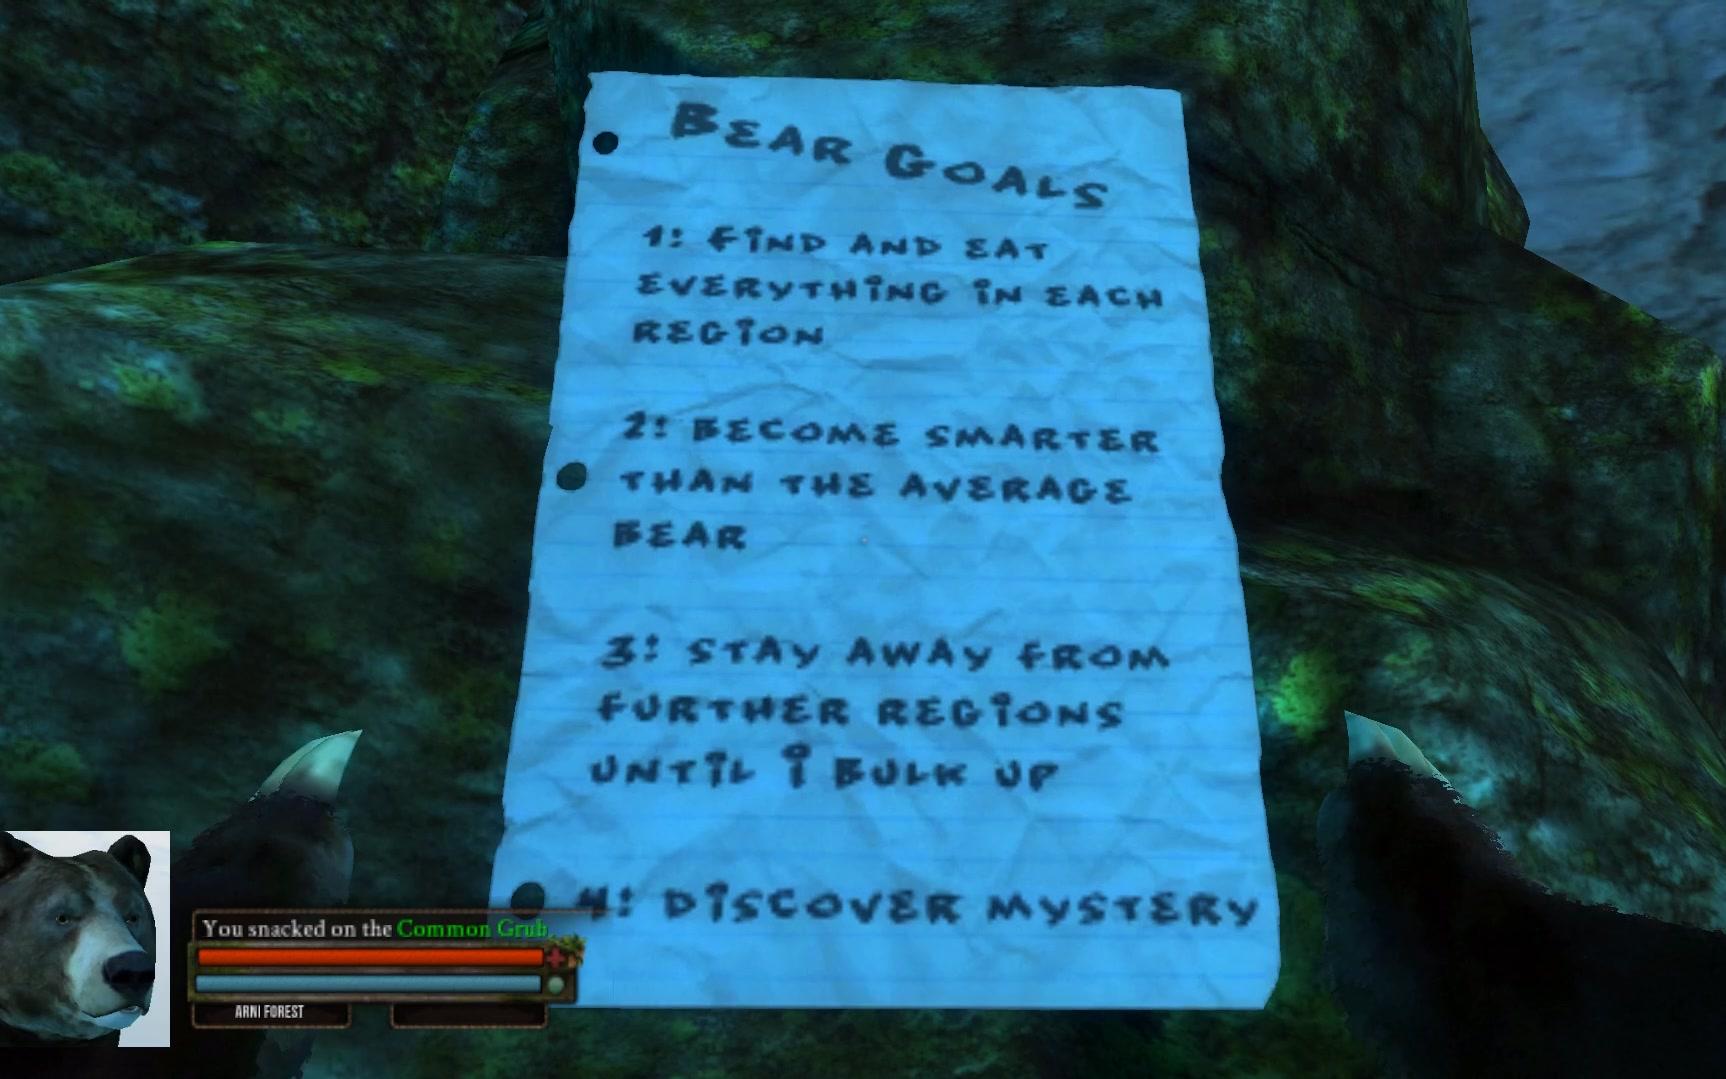 BEAR GOALS
1: FIND AND EAT
EVERYTHING IN EACH
REGION
2: BECOME SMARTER
THAN THE AVERAGE
BEAR
3: STAY AWAY FROM
FURTHER REGIONS
UNTIL I BULK UP
4: DISCOVER MYSTERY
You snacked on the Common Grub
ARNI FOREST